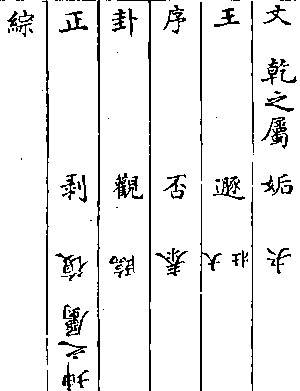 文 乾之屬 姤 夬
王 遯 大壯
序 否 泰
卦 觀 臨
正 剝 復 坤之屬
綜